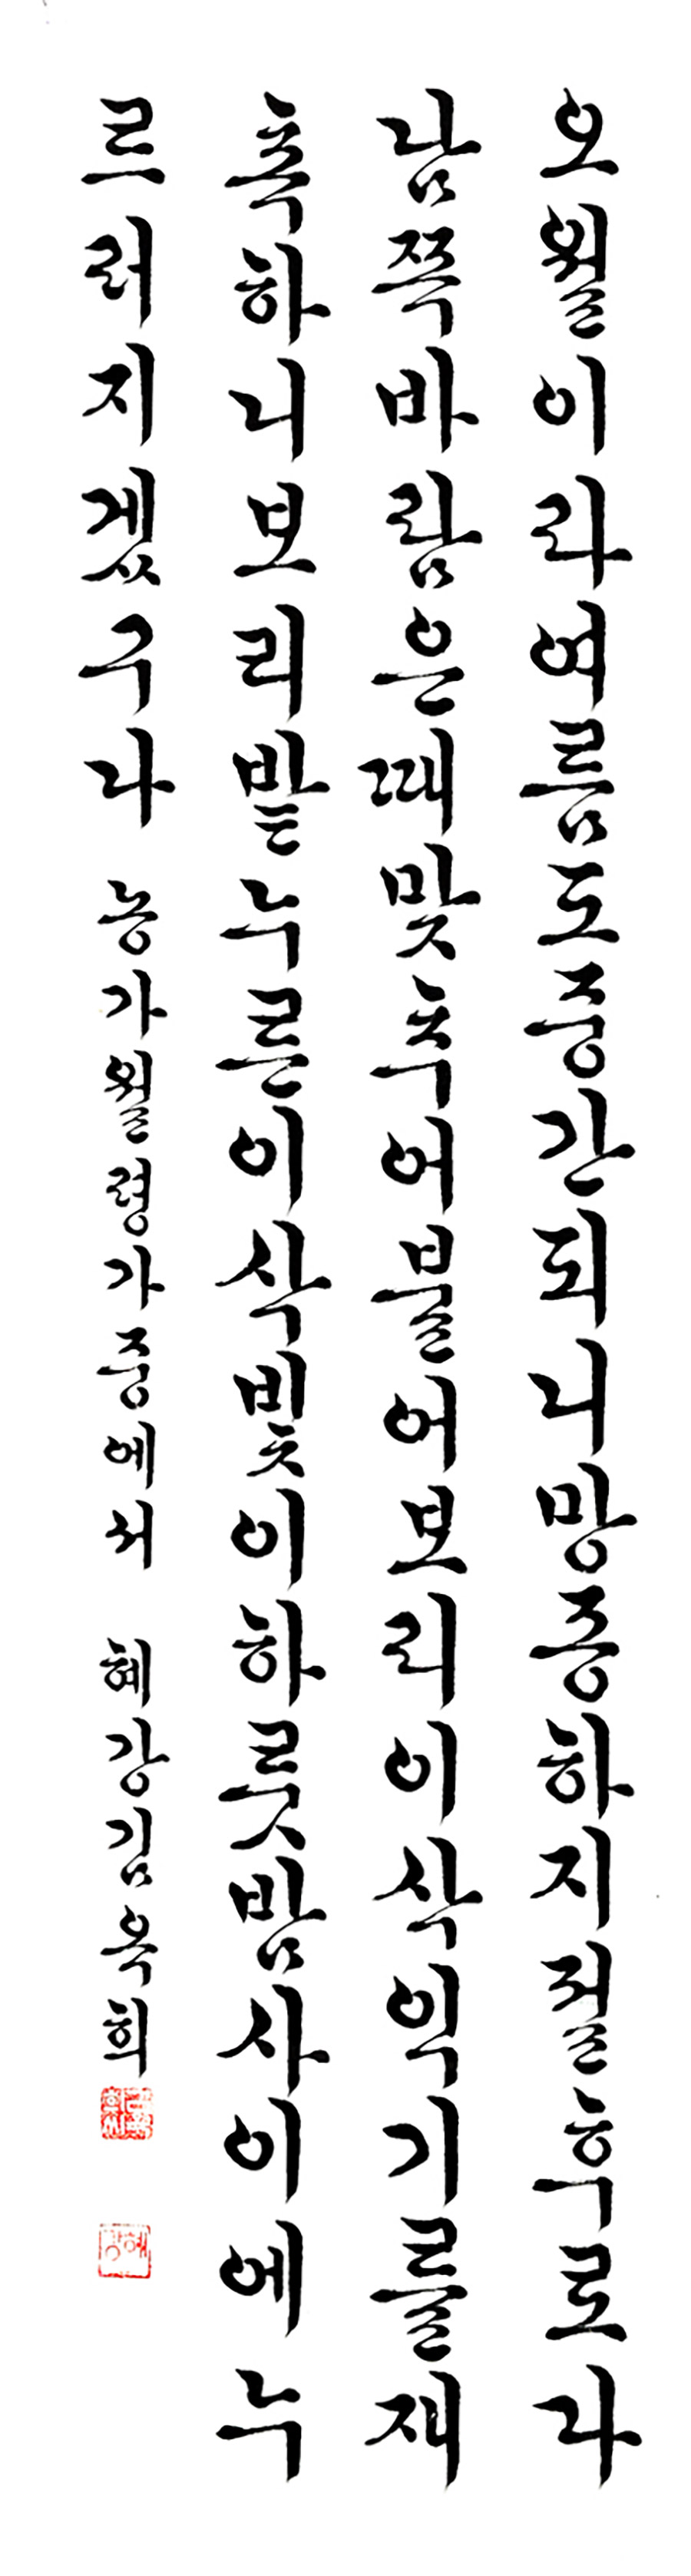 오월이라여름도중간되니망종하지절후로라
남쪽바람은때맞추어불어보리이삭익기를재
촉하니보리밭누른이삭빛이하룻밤사이에누
르러지겠구나 농가월령가중에서 혜강김옥희